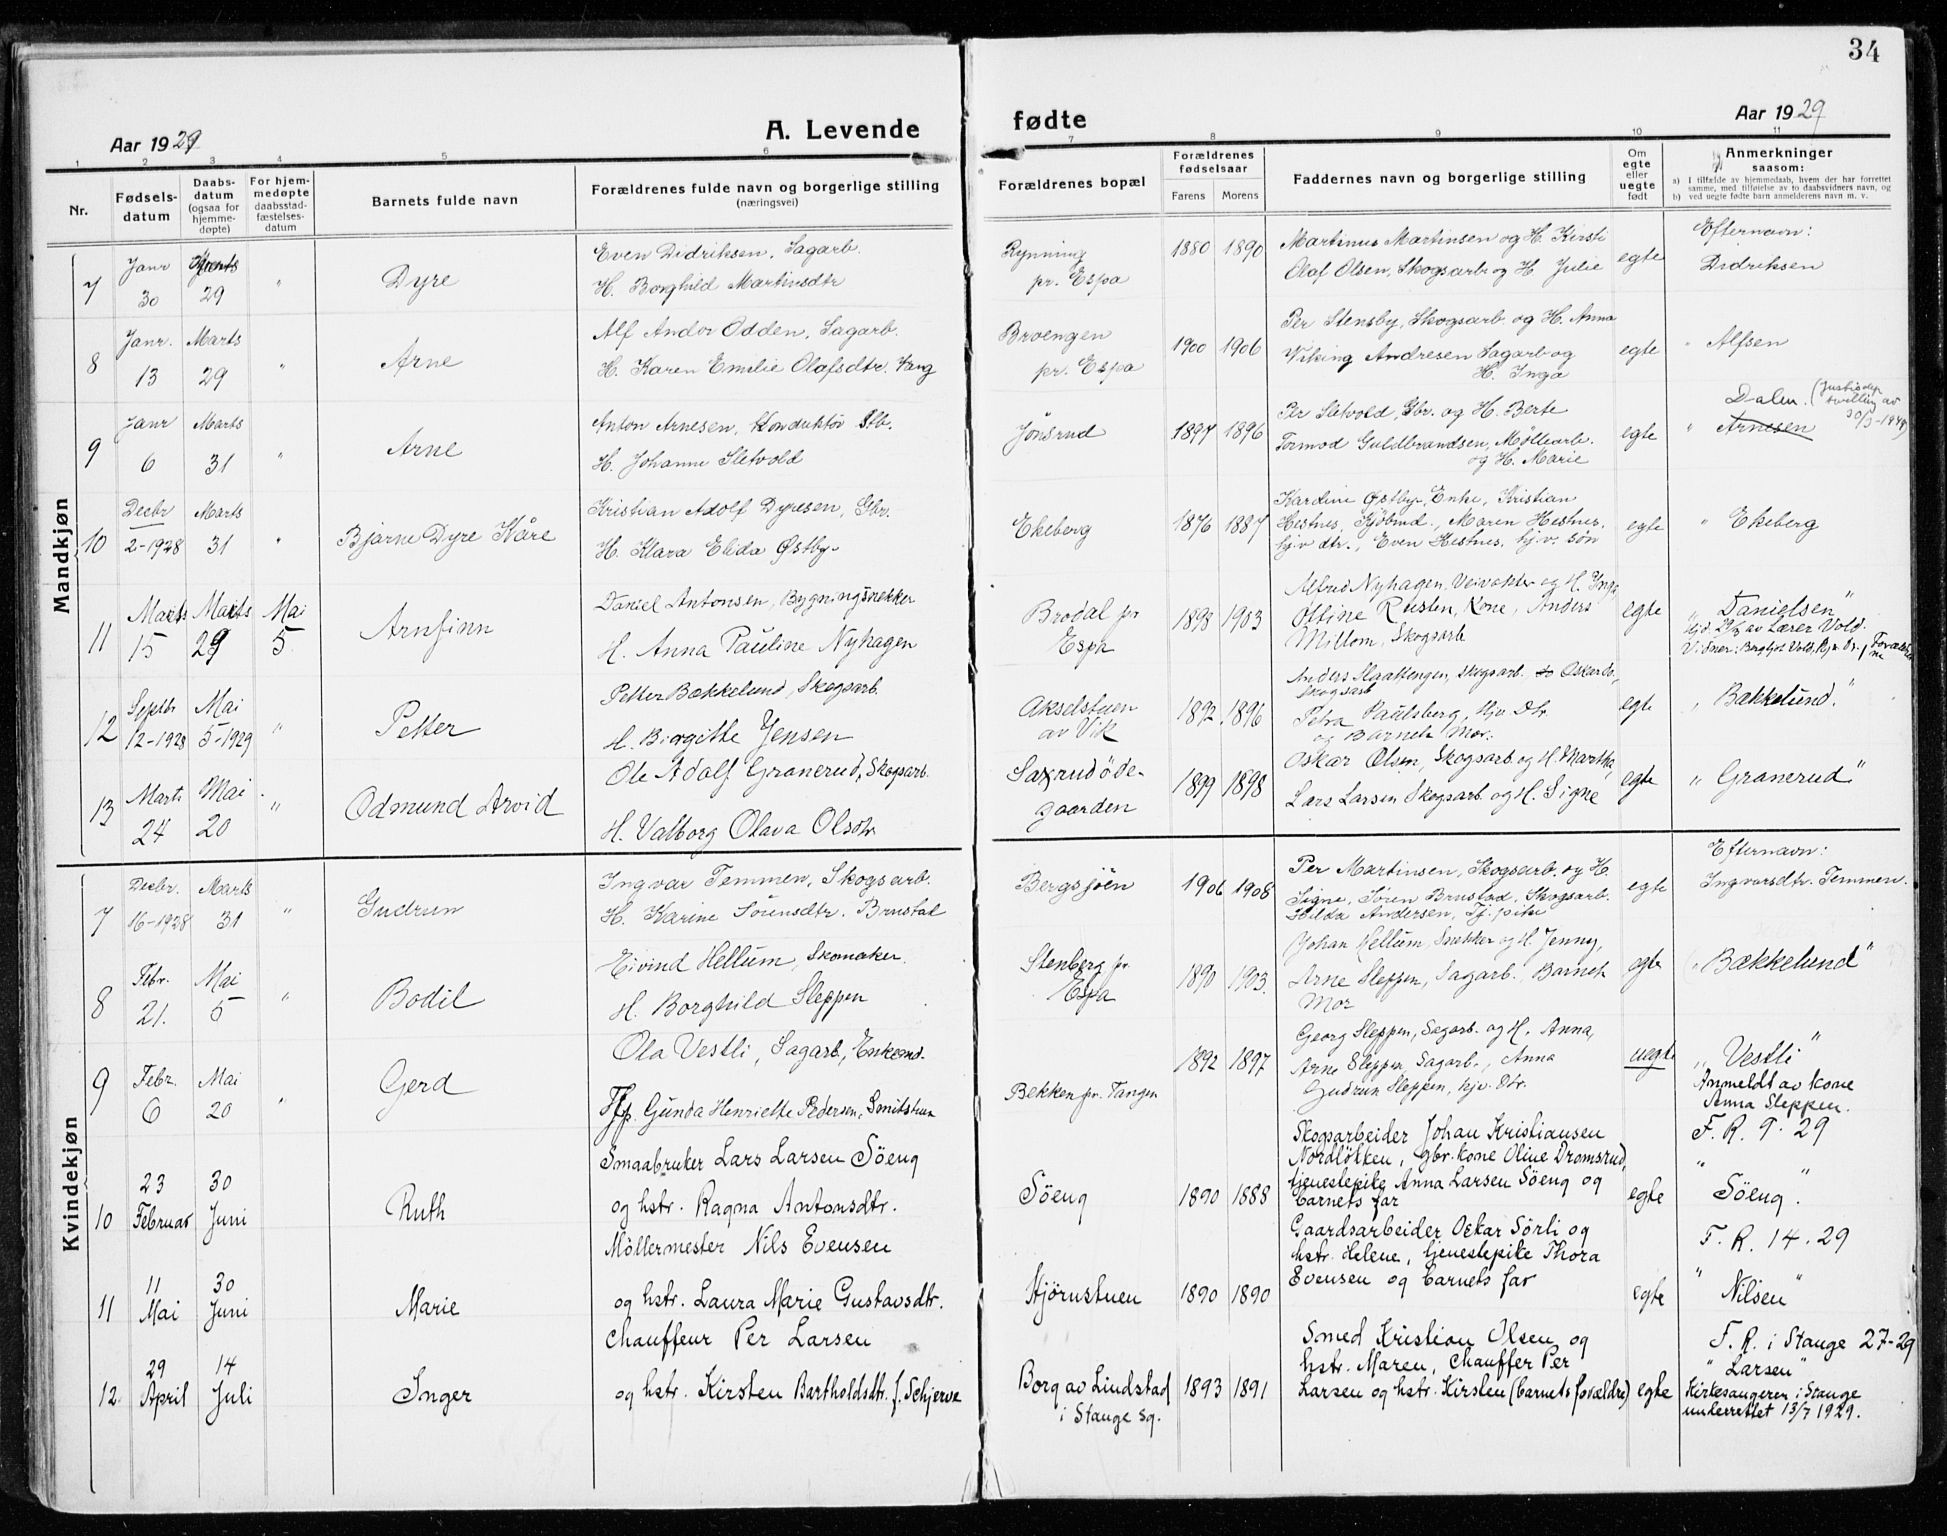 34
Aar 1929
A. Levende
fødte
Aar 1929
1 2 3 4 5 6
7 8 9 10 11
Nr.
Fødsels-
datum
Daabs-
datum
(ogsaa for
hjemme-
døpte)
For hjem-
medøpte
daabsstad-
fæstelses-
datum
Barnets fulde navn
Forældrenes fulde navn og borgerlige stilling
(næringsvei)
Forældrenes bopæl
Forældrenes
fødselsaar
Farens Morens
Faddernes navn og borgerlige stilling
Om
egte
eller
uegte
født
Anmerkninger
saasom:
a) I tilfælde av hjemmedaab, hvem der har forrettet
samme, med tilføielse av to daabsvidners navn, og
b) ved uegte fødte barn anmelderens navn m. v.
Mandkjøn
7 Janr 30 Marts 29 " Dyre
Even Didriksen, Sagarb.
H. Borghild Martinsdtr
Rynning
pr. Espa
1880 1890
Martinus Martinsen og H. Kirsti
Olaf Olsen, Skogsarb og H Julie
egte
Efternavn:
Didriksen
8 Janr. 13 Marts 29 " Arne
Alf Andor Odden, Sagarb.
H. Karen Emilie Olafsdtr. Vang
Broengen
pr. Espa
1900 1906
Per Stensby, Skogsarb. og H. Anna
Viking Andresen Sagarb og
H. Inga
egte
" Alfsen
9 Janr 6 Marts 31 " Arne
Anton Arnesen, Konduktør Stb.
H. Johanne Sletvold
Jønsrud
1897 1896
Per Sletvold, Gbr. og H. Berte
Tormod Guldbrandsen, Møllearb.
og H. Marie
egte
Dalen (Justisdep
av
30/3-1949)
" Arnesen
10 Decbr 2-1928 Marts 31 " Bjarne Dyre Kåre
Kristian Adolf Dyresen, Gbr.
H. Klara Elida Østby
Ekeberg
1876 1887
Kardine Østby, Enke, Kristian
Hestnes, Kjøbmd., Maren Hestnes,
hjv dtr., Even Hestnes, hjv. søn
egte
" Ekeberg
11 Marts 15 Marts 29 Mai 5 Arnfinn
Daniel Antonsen, Bygningsnekker
H. Anna Pauline Nyhagen
Brodal pr
Espa
1898 1903
Alfred Nyhagen, Veivokter og H. Inga,
Ottine Rusten, Kone, Anders
Millom, Skogsarb
egte
" Danielsen "
Hjd. 29/3 av Lærer Vold.
Vidner: Bergljot Vold,
12 Septbr 12-1928 Mai 5-1929 " Petter
Petter Bækkelund, Skogsarb.
H. Birgitte Jensen
Akselstuen
av Vik
1892 1896
Anders Slaattengen, Skogsarb. Oskar do,
Skogsarb
Petra Paulsberg, Hjv. Dtr.
og Barnets Mor.
egte
" Bækkelund."
13 Marts 24 Mai 20 " Odmund Arvid
Ole Adolf Granerud, Skogsarb.
H. Valborg Olava Olsdtr
Saxrudøde-
gaarden
1899 1898
Oskar Olsen, Skogsarb og H. Martha,
Lars Larsen Skogsarb. og H. Signe
egte
" Granerud "
Kvindekjøn
7 Decbr. 16-1928 Marts 31 " Gudrun
Ingvar Temmen, Skogsarb.
H. Karine Sørensdtr. Brustad
Bergsjøen
1906 1908
Per Martinsen, Skogsarb. og H.
Signe, Søren Brustad, Skogsarb.
Hilda Andersen, Tj. pike
egte
Efternavn:
Ingvarsdtr. Temmen.
8 Febr. 21. Mai 5 " Bodil
Eivind Hellum, Skomaker.
H. Borghild Sleppen
Stenberg pr.
Espa
1890 1903.
Johan Hellum, Snekker og H. Jenny,
Arne Sleppen, Sagarb. Barnets
Mor
egte
" Bækkelund "
9 Febr. 6 Mai 20 " Gerd
Ola Vestli, Sagarb., Enkemd.
Tjp. Gunda Henriette Pedersen, Smitstuen
Bekken pr. Tangen
1892 1897
Georg Sleppen, Sagarb. og H. Anna,
Arne Sleppen, Sagarb., Anna
Gudrun Sleppen, hjv. Dtr.
uegte
" Vestli "
Anmeldt av kone
Anna Sleppen.
F. R. 9. 29
10 23 Februar 30 Juni Ruth
Smaabruker Lars Larsen Söeng
og hstr. Ragna Antonsdtr.
Söeng
1890 1888
Skogsarbeider Johan Kristiansen
Nordløkken, gbr. kone Oline Dromsrud,
tjenestepike Anna Larsen Söeng og
barnets far
egte
" Söeng. "
F. R. 14. 29
11 11 Mai 30 Juni Marie
Møllermester Nils Evensen
og hstr. Laura Marie Gustavsdtr.
Stjörnstuen
1890 1890
Gaardsarbeider Oskar Sörli og
hstr. Helene, tjenestepike Thora
Evensen og barnets far
egte
" Nilsen "
F. R. i Stange 27-29
12. 29 April 14 Juli Inger
Chauffeur Per Larsen
og hstr. Kirsten Bartholdsdtr. f. Schjerve
Borg av Lindstad
i Stange sg.
1893 1891
Smed Kristian Olsen og
hstr. Maren, Chauffer Per
Larsen og hstr. Kirsten (barnets forældre)
egte
" Larsen "
Kirkesangeren i Stange
underrettet 13/7 1929.